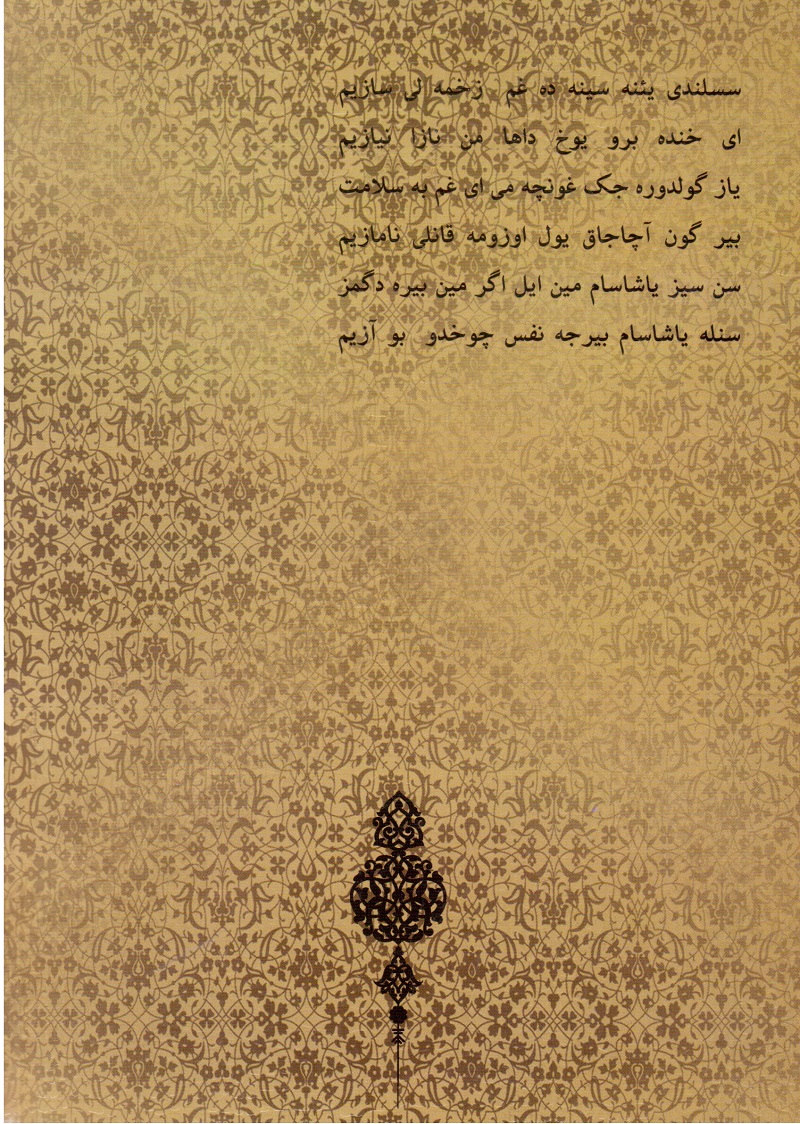 سسلندی یئنه سینه ده غم زخمه لی سازیم
ای خنده برو یوخ داها من نازا نیازیم
یاز گولدوره جک غونچه می ای غم به سلامت
بیر گون آچاجاق یول اوزومه قانلی نامازیم
سن سیز یاشاسام مین ایل اگر مین بیره دگمز
سنله یاشاسام بیرجه نفس چوخدو بو آزیم